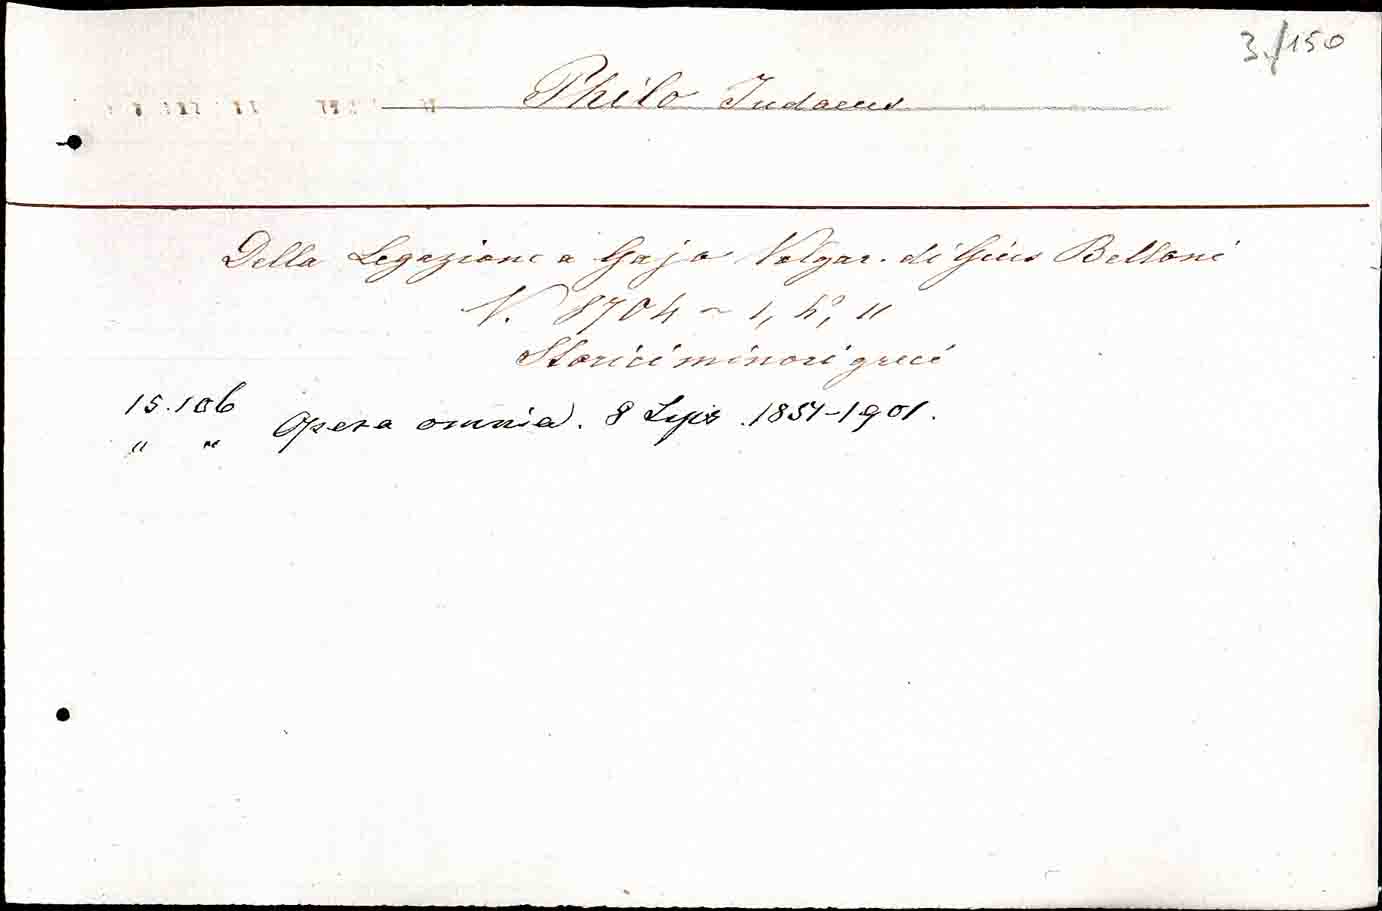 3./150
Philo Judaeus
Della Legazione a Gajo Volgar. di Gius Belloni
V. 8704 ~ 1, 4°, 11
Storici minori greci
15.106 Opera omnia. 8 Lips. 1851-1901.
" "